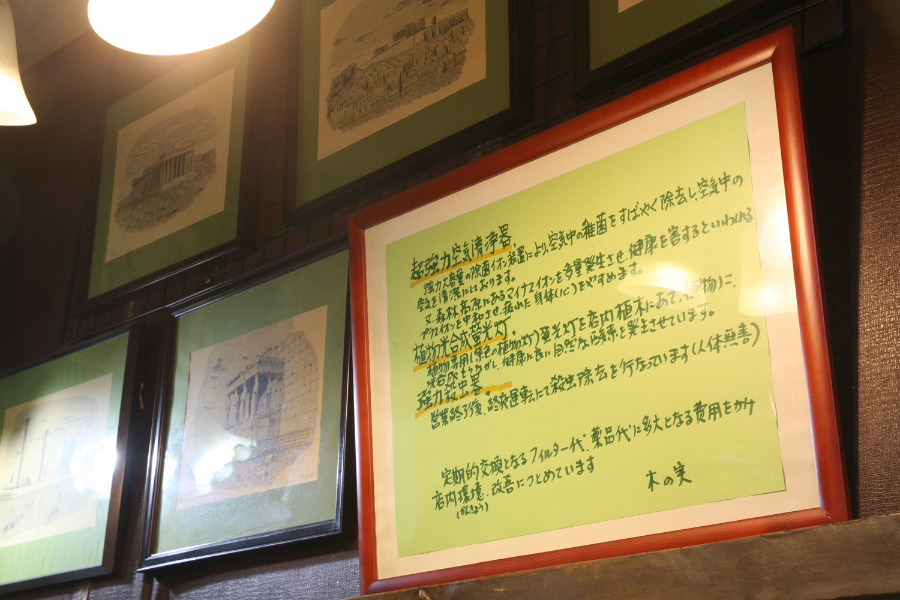 超強力空気清浄器。
強力大容量の除菌イオン装置により、空気中の雑菌をすばやく除去し、空気中の
空気を清潔にしております。
又、森林、高原にあるマイナスイオンを多量発生させ、健康を害するといわれる
プラスイオンを中和させ、疲れた身体(心)をやすめます。
植物光合成蛍光灯。
植物専用(紫色の植物灯)蛍光灯を店内植木にあて、植物に、
光合成をうながし、健康に良い自然な酸素を発生させています。
強力殺虫器。
営業終了後、終夜運転にて殺虫除去を行なっています(人体無害)
定期的交換となるフィルター代、薬品代に多大となる費用をかけ
店内環境、改善につとめています
(かんきょう)
木の実